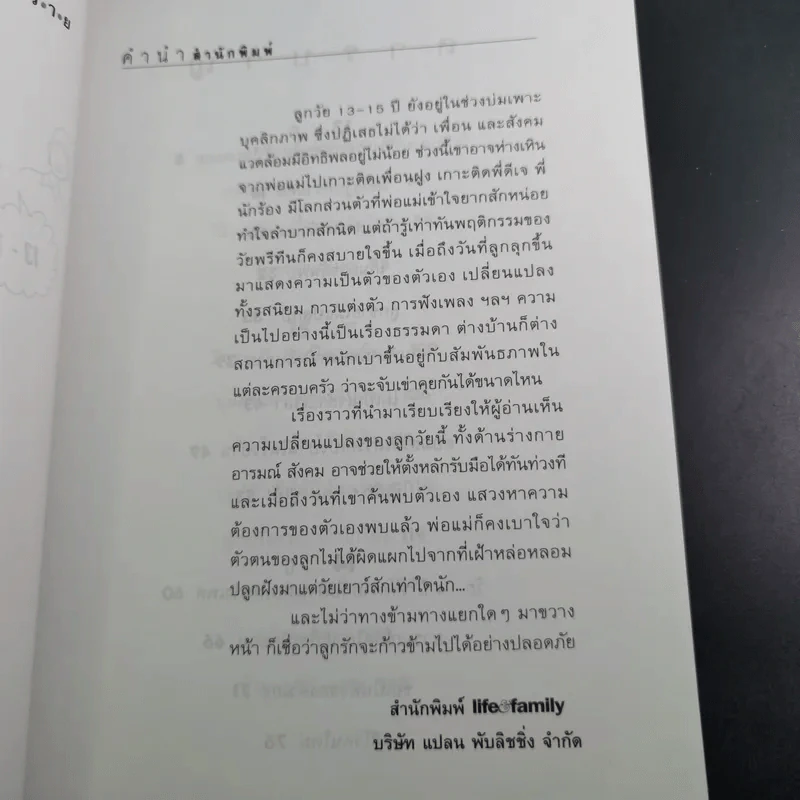 คำนำสำนักพิมพ์
ลูกวัย 13-15 ปี ยังอยู่ในช่วงบ่มเพาะ
บุคลิกภาพ ซึ่งปฏิเสธไม่ได้ว่า เพื่อน และสังคม
แวดล้อมมีอิทธิพลอยู่ไม่น้อย ช่วงนี้เขาอาจห่างเหิน
จากพ่อแม่ไปเกาะติดเพื่อนฝูง เกาะติดพี่ดีเจ พี่
นักร้อง มีโลกส่วนตัวที่พ่อแม่เข้าใจยากสักหน่อย
ทำใจลำบากสักนิด แต่ถ้ารู้เท่าทันพฤติกรรมของ
วัยพรีทีนก็คงสบายใจขึ้น เมื่อถึงวันที่ลูกลุกขึ้น
มาแสดงความเป็นตัวของตัวเอง เปลี่ยนแปลง
ทั้งรสนิยม การแต่งตัว การฟังเพลง ฯลฯ ความ
เป็นไปอย่างนี้เป็นเรื่องธรรมดา ต่างบ้านก็ต่าง
สถานการณ์ หนักเบาขึ้นอยู่กับสัมพันธภาพใน
แต่ละครอบครัว ว่าจะจับเข่าคุยกันได้ขนาดไหน
เรื่องราวที่นำมาเรียบเรียงให้ผู้อ่านเห็น
ความเปลี่ยนแปลงของลูกวัยนี้ ทั้งด้านร่างกาย
อารมณ์ สังคม อาจช่วยให้ตั้งหลักรับมือได้ทันท่วงที
และเมื่อถึงวันที่เขาค้นพบตัวเอง แสวงหาความ
ต้องการของตัวเองพบแล้ว พ่อแม่ก็คงเบาใจว่า
ตัวตนของลูกไม่ได้ผิดแผกไปจากที่เฝ้าหล่อหลอม
ปลูกฝังมาแต่วัยเยาว์สักเท่าใดนัก...
และไม่ว่าทางข้ามทางแยกใดๆ มาขวาง
หน้า ก็เชื่อว่าลูกรักจะก้าวข้ามไปได้อย่างปลอดภัย
สำนักพิมพ์ life&family
บริษัท แปลน พับลิชชิ่ง จำกัด